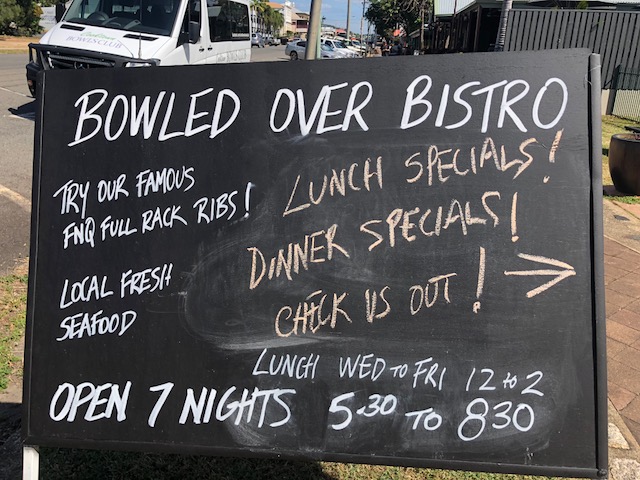 BOWLS CLUB
BOWLED OVER BISTRO
TRY OUR FAMOUS
FNQ FULL RACK RIBS!
LOCAL FRESH
SEAFOOD
LUNCH SPECIALS!
DINNER SPECIALS!
CHECK US OUT!
LUNCH WED TO FRI 12 to 2
OPEN 7 NIGHTS 5.30 TO 830